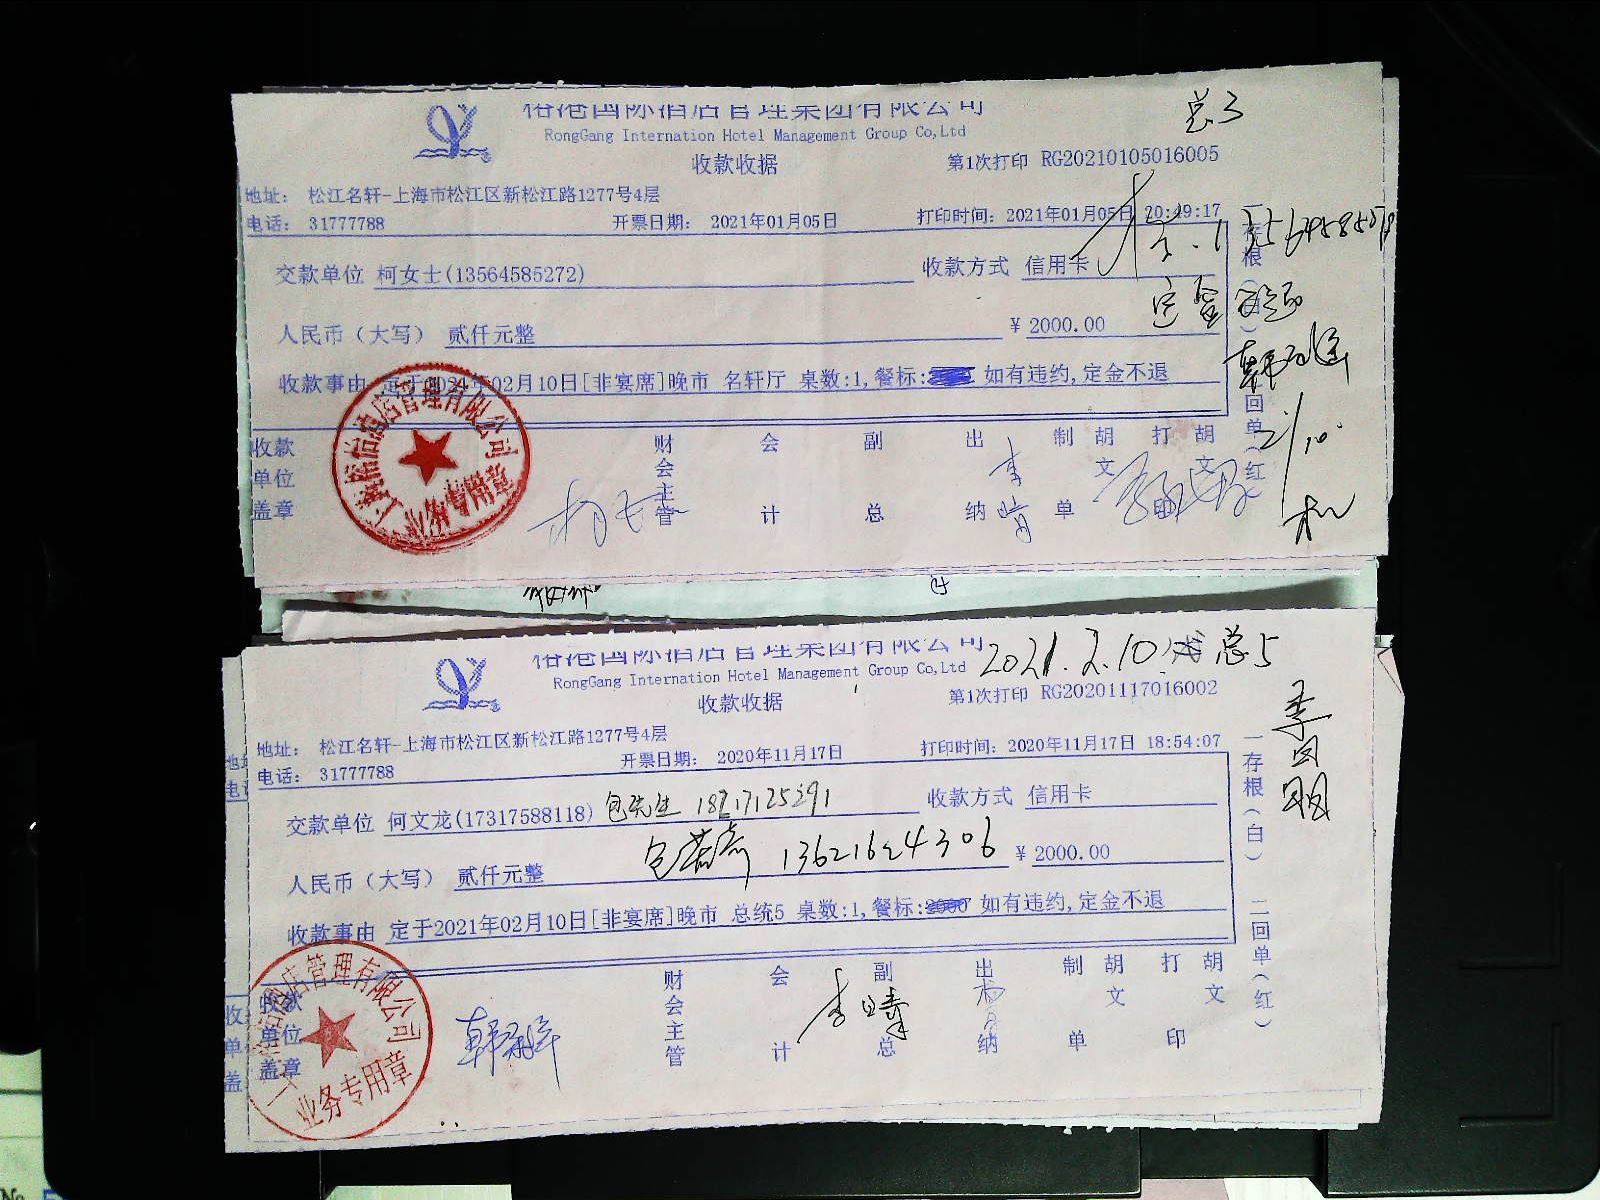 国际酒店管理集团有限公司
总3
RongGang Internation Hotel Management Group Co,Ltd
收款收据
第1次打印 RG20210105016005
地址： 松江名轩-上海市松江区新松江路1277号4层
电话： 31777788
开票日期： 2021年01月05日
打印时间：2021年01月05日 20:49:17
交款单位 柯女士(13564585272)
收款方式 信用卡
人民币（大写） 贰仟元整
￥ 2000.00
定金
收款事由 定于2021年02月10日[非宴席]晚市 名轩厅 桌数:1,餐标: 如有违约,定金不退
收款单位盖章
财会主管
会计
副总
出纳
李晴
制单
胡文
打印
胡文
存根
回单（红）
2/10
业务专用章
国际酒店管理集团有限公司
2021.2.10
总5
RongGang Internation Hotel Management Group Co,Ltd
收款收据
第1次打印 RG20201117016002
地址： 松江名轩-上海市松江区新松江路1277号4层
电话： 31777788
开票日期： 2020年11月17日
打印时间：2020年11月17日 18:54:07
交款单位 何文龙(17317588118) 包先生 18217125291
收款方式 信用卡
13621624306
人民币（大写） 贰仟元整
￥ 2000.00
收款事由 定于2021年02月10日[非宴席]晚市 总统5 桌数:1,餐标:2000 如有违约,定金不退
收款单位盖章
财会主管
会计
副总
出纳
制单
胡文
打印
胡文
一存根（白） 二回单（红）
酒店管理有限公司
业务专用章